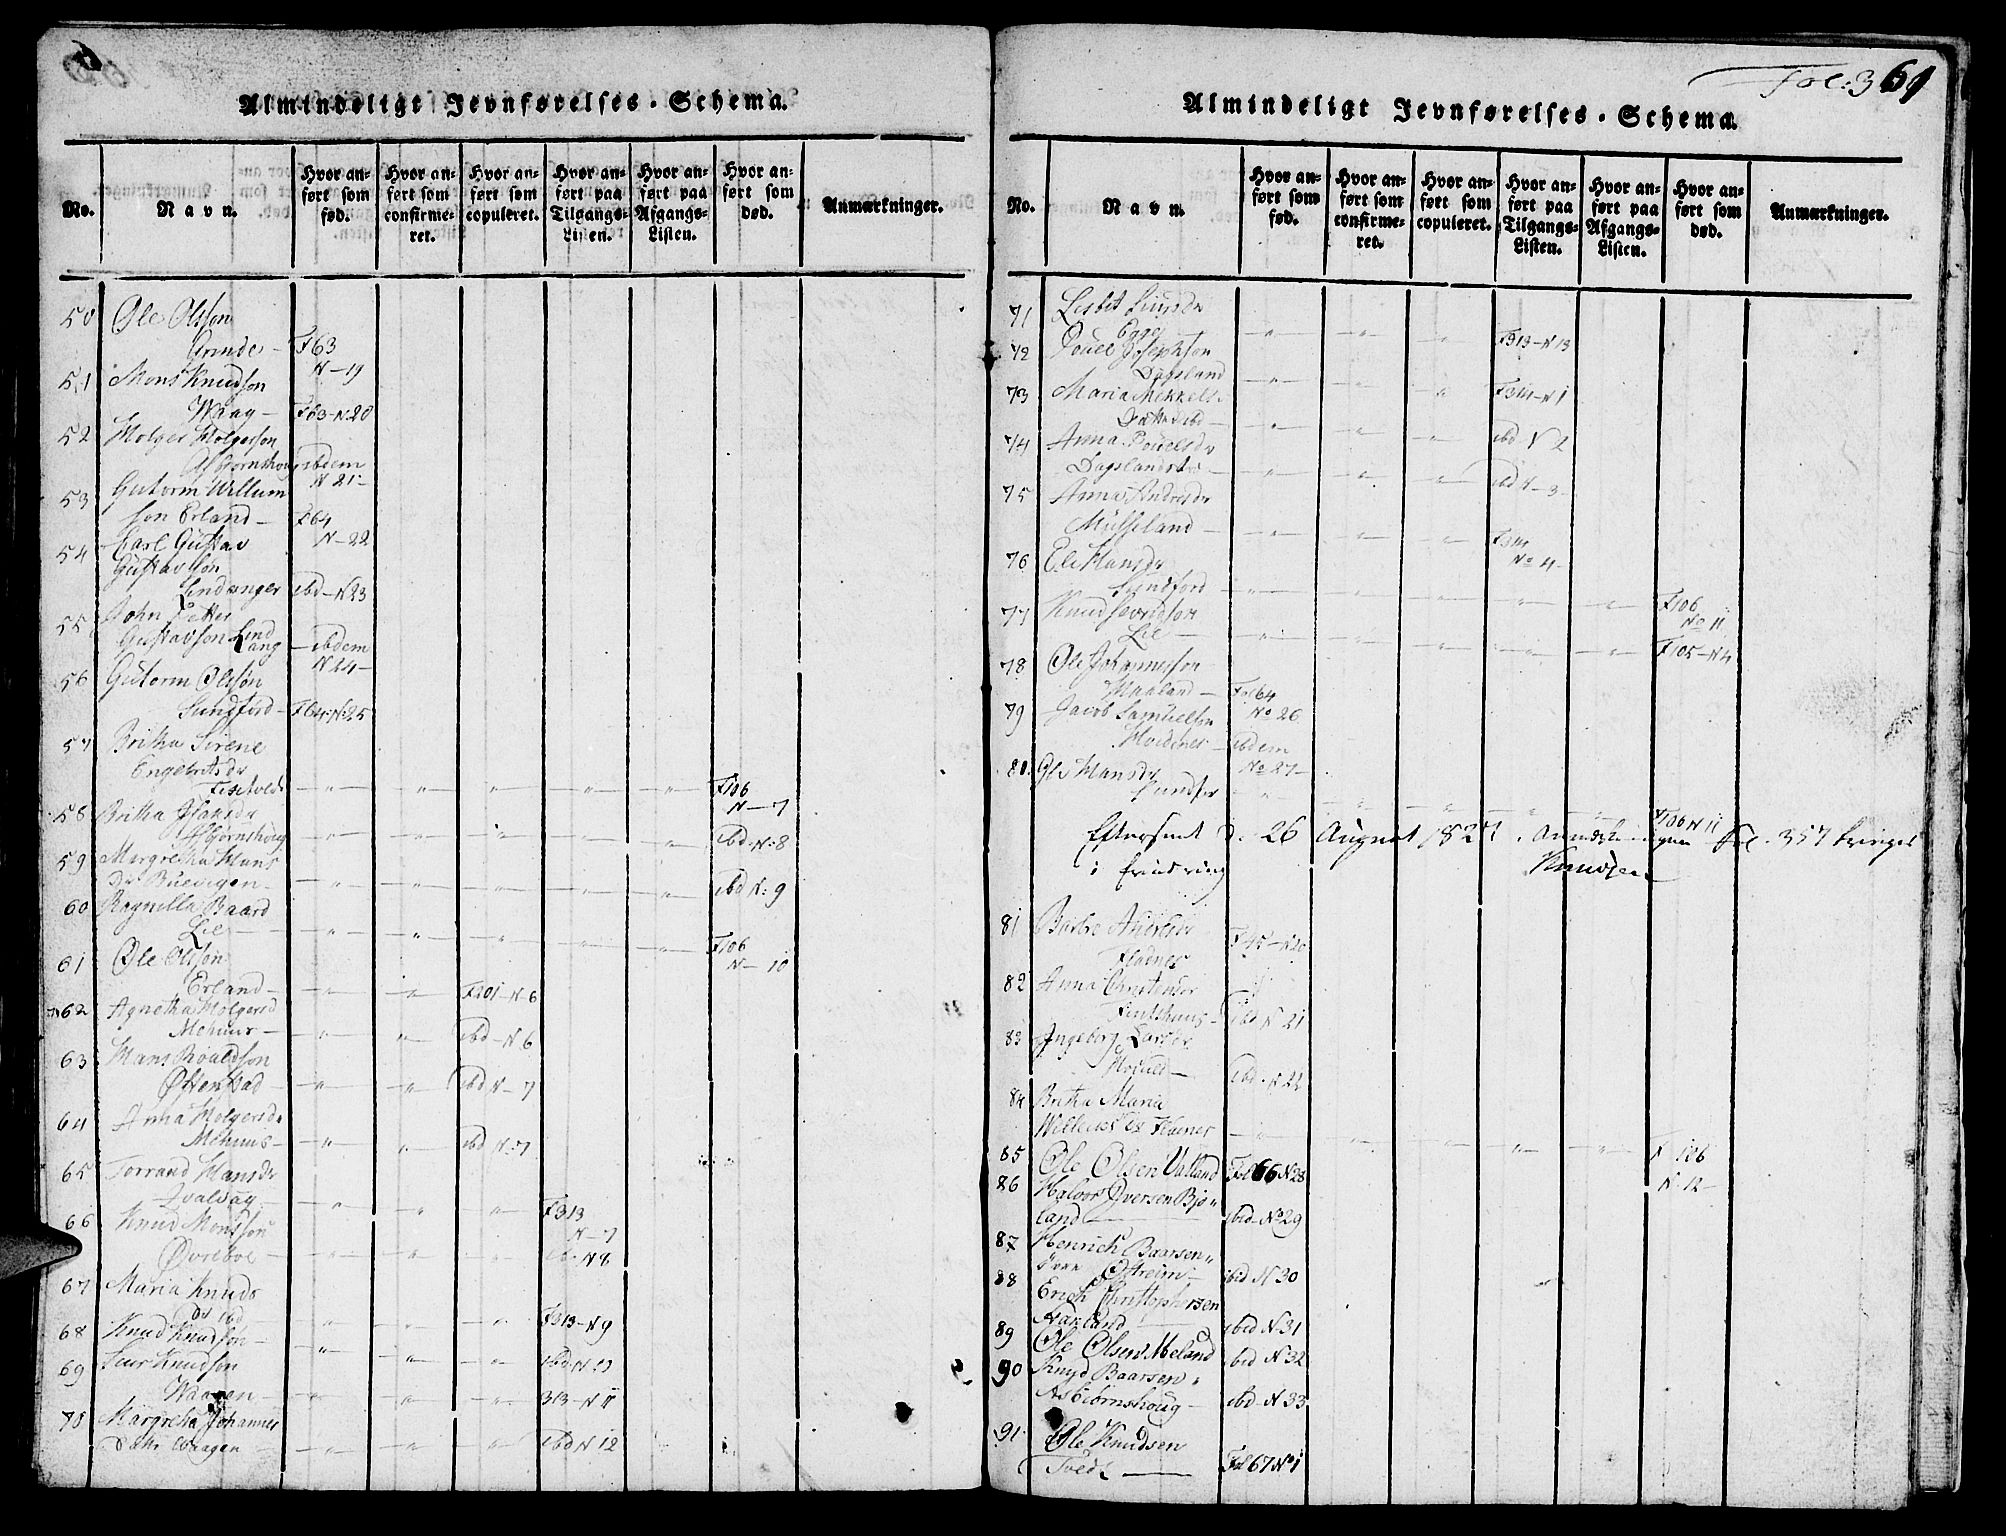 Almindeligt Jevnførelses-Schema.
No.
Navn.
Hvor anført som fød.
Hvor anført som confirmeret.
Hvor anført som copuleret.
Hvor anført paa Tilgangs-Listen.
Hvor anført paa Afgangs-Listen.
Hvor anført som død.
Anmærkninger.
50 Ole Olsson
Grinde - F63
N-19
51 Mons Knudson
Waag - F63-N20
52 Holger Holgerson
Asbjørnshoug ibdem
N21-
53 Gutorm Willum
son Erland - F64
N-22
54 Carl Gustav
Gustavson
Lindanger ibd-N23
55 John Petter
Gustavson Lind
ang - ibdem
N24-
56 Gutorm Olsson
Sundford - F64-N25
57 Britha Sirene
Engebretsdr
F106
N-7
58 Britha
Asbjørnshoug ibd-N-8
59 Margretha Hans
dr Buevigen - ibd N:9
60 Ragnilla Baard
Lie - F106
N-10
61 Ole Olsson
Erland - F201-N6
62 Agnetha Holgersd
Mehuus - ibd-N6
63 Hans Roaldson
Østenstad - ibd N-7
64 Anna Holgersdr
Mehuus - ibd N-7
65 Torrand Hansdr
Qvalvaag - F313
N-7
66 Knud Monsson
Øvreboe - ib-N8
67 Maria Knuds
Dr ibd F313-N9
68 Knud Knudson - ibd-N10
69 Siur Knudson
Waagen - 313-N11
70 Margretha Johannes
Datr Waagen - ibd N12
Fol: 361
Almindeligt Jevnførelses-Schema.
No.
Navn.
Hvor anført som fød.
Hvor anført som confirmeret.
Hvor anført som copuleret.
Hvor anført paa Tilgangs-Listen.
Hvor anført paa Afgangs-Listen.
Hvor anført som død.
Anmærkninger.
71 Lisbet Siursdr
Egge - F313-N13
72 Povel Josephson
Dagsland - F314-N1
73 Maria Mekkels
Datter ibd - ibd N2
74 Anna Povelsdr
Dagsland - ibd N-3-
75 Anna Andresdr
Musseland - F314
No 4-
76 Eli Hansdr
Sundford - F106
No 11
77 Knud
Lie - F105-N4
78 Ole Johannesson
Maaland - Fol 64
No 26
79 Jacob Samuelson
Hvidenes - ibdem
No 27-
80 Eli Hansdr
F106 N 11
Efterseet d. 26 August 1827. Fol. 357 bringes
i Erindring Knudsen
81
Flaenes F45-N20
82 Anna
ibd N 21
83 Ingeborg Larsdr
ibd-N22
84 Britha Maria
Willumsdr Flaenes F 106
N-12-
85 Ole Olsen Valland Fol 66 N28
86 Halvor Iversen Bjo"
land ibid-No29
87 Henrich Baarsen"
Østreim - ibid N30
88 Erich Christophersen
Aarland ibid N31
89 Ole Olsen Meland ibid N32
90 Knud Baarsen"
Asbiørnshoug - ibd-N33
91 Ole Knudsen
Tvedt Fol 67 No 1